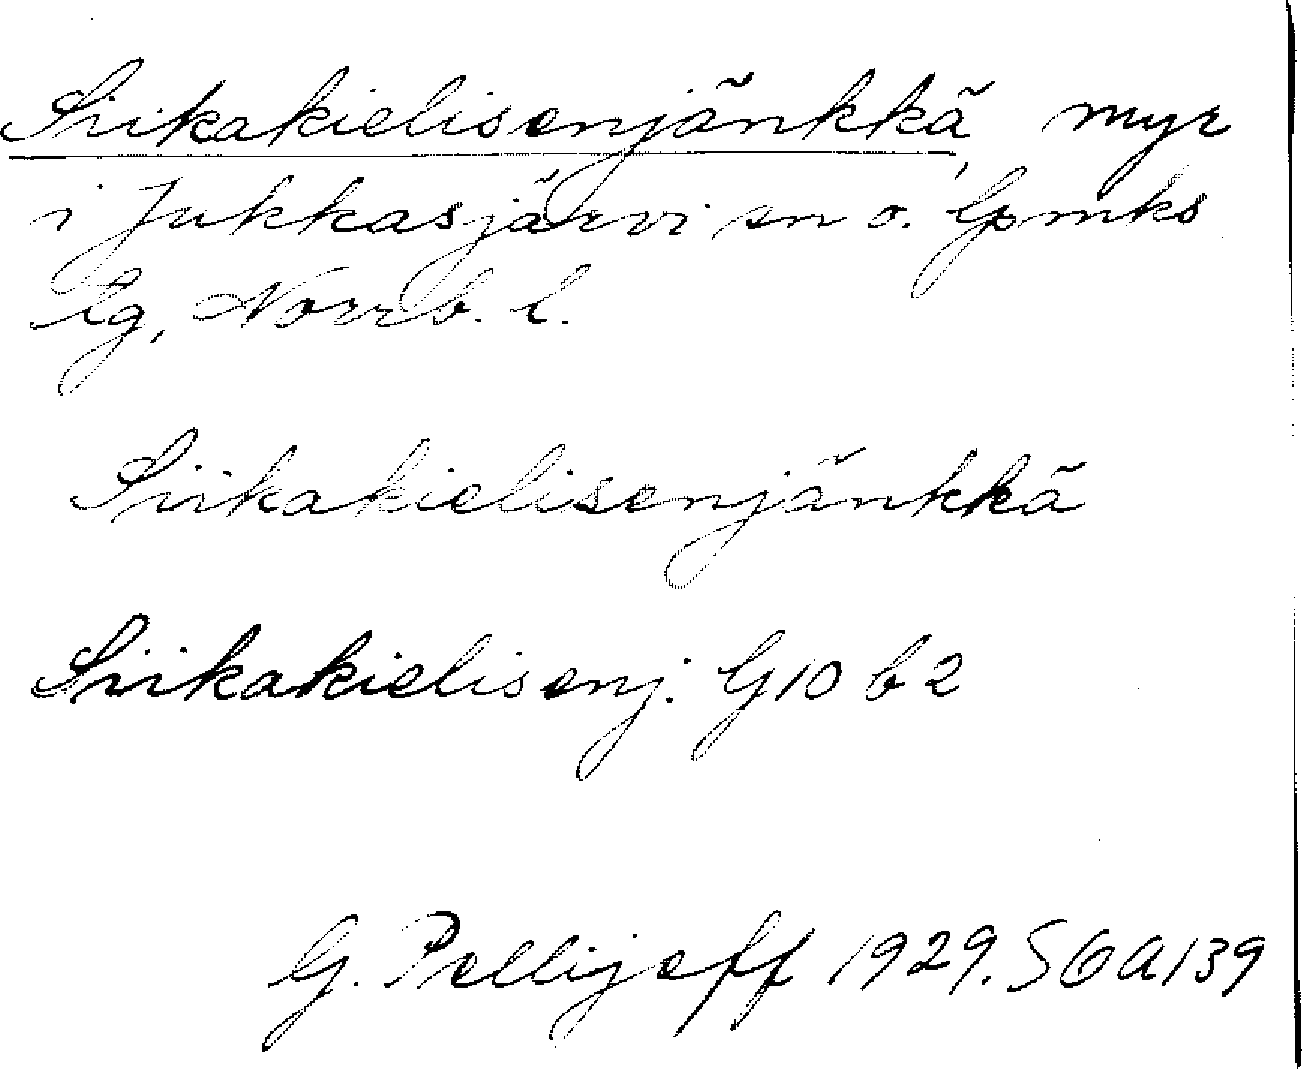 Siikakielisenjänkkä, myr
i Jukkasjärvi sn o. lpmks
lg, Norrb. l.
Siikakielisenjänkkä
Siikakielisenj. G10 b2
G. Pellijeff 1929. SGA139